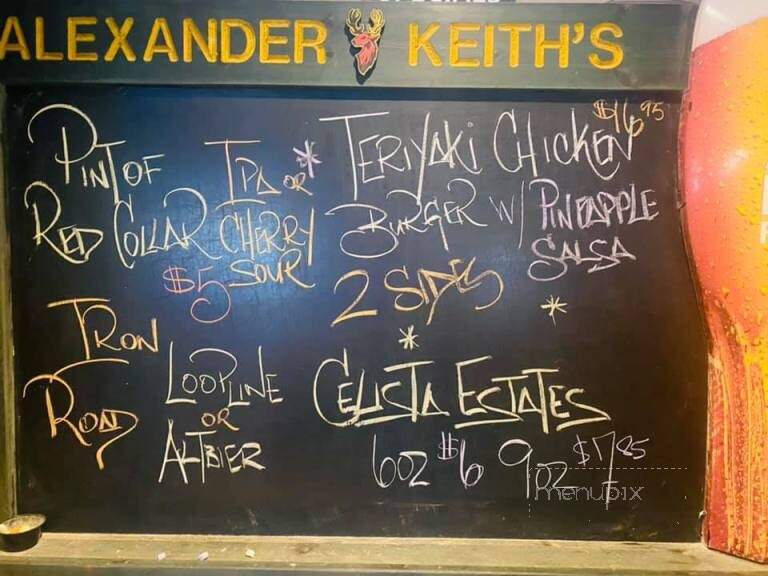 ALEXANDER KEITH'S
PINT OF
RED COLLAR
IPA OR
CHERRY
SOUR
$5
IRON
ROAD
LOOPLINE
OR
ALTBIER
* TERIYAKI CHICKEN $16.95
BURGER W/ PINEAPPLE
SALSA
2 SIDES
*
*
CELISTA ESTATES
6OZ $6 9OZ $7.85
menupix